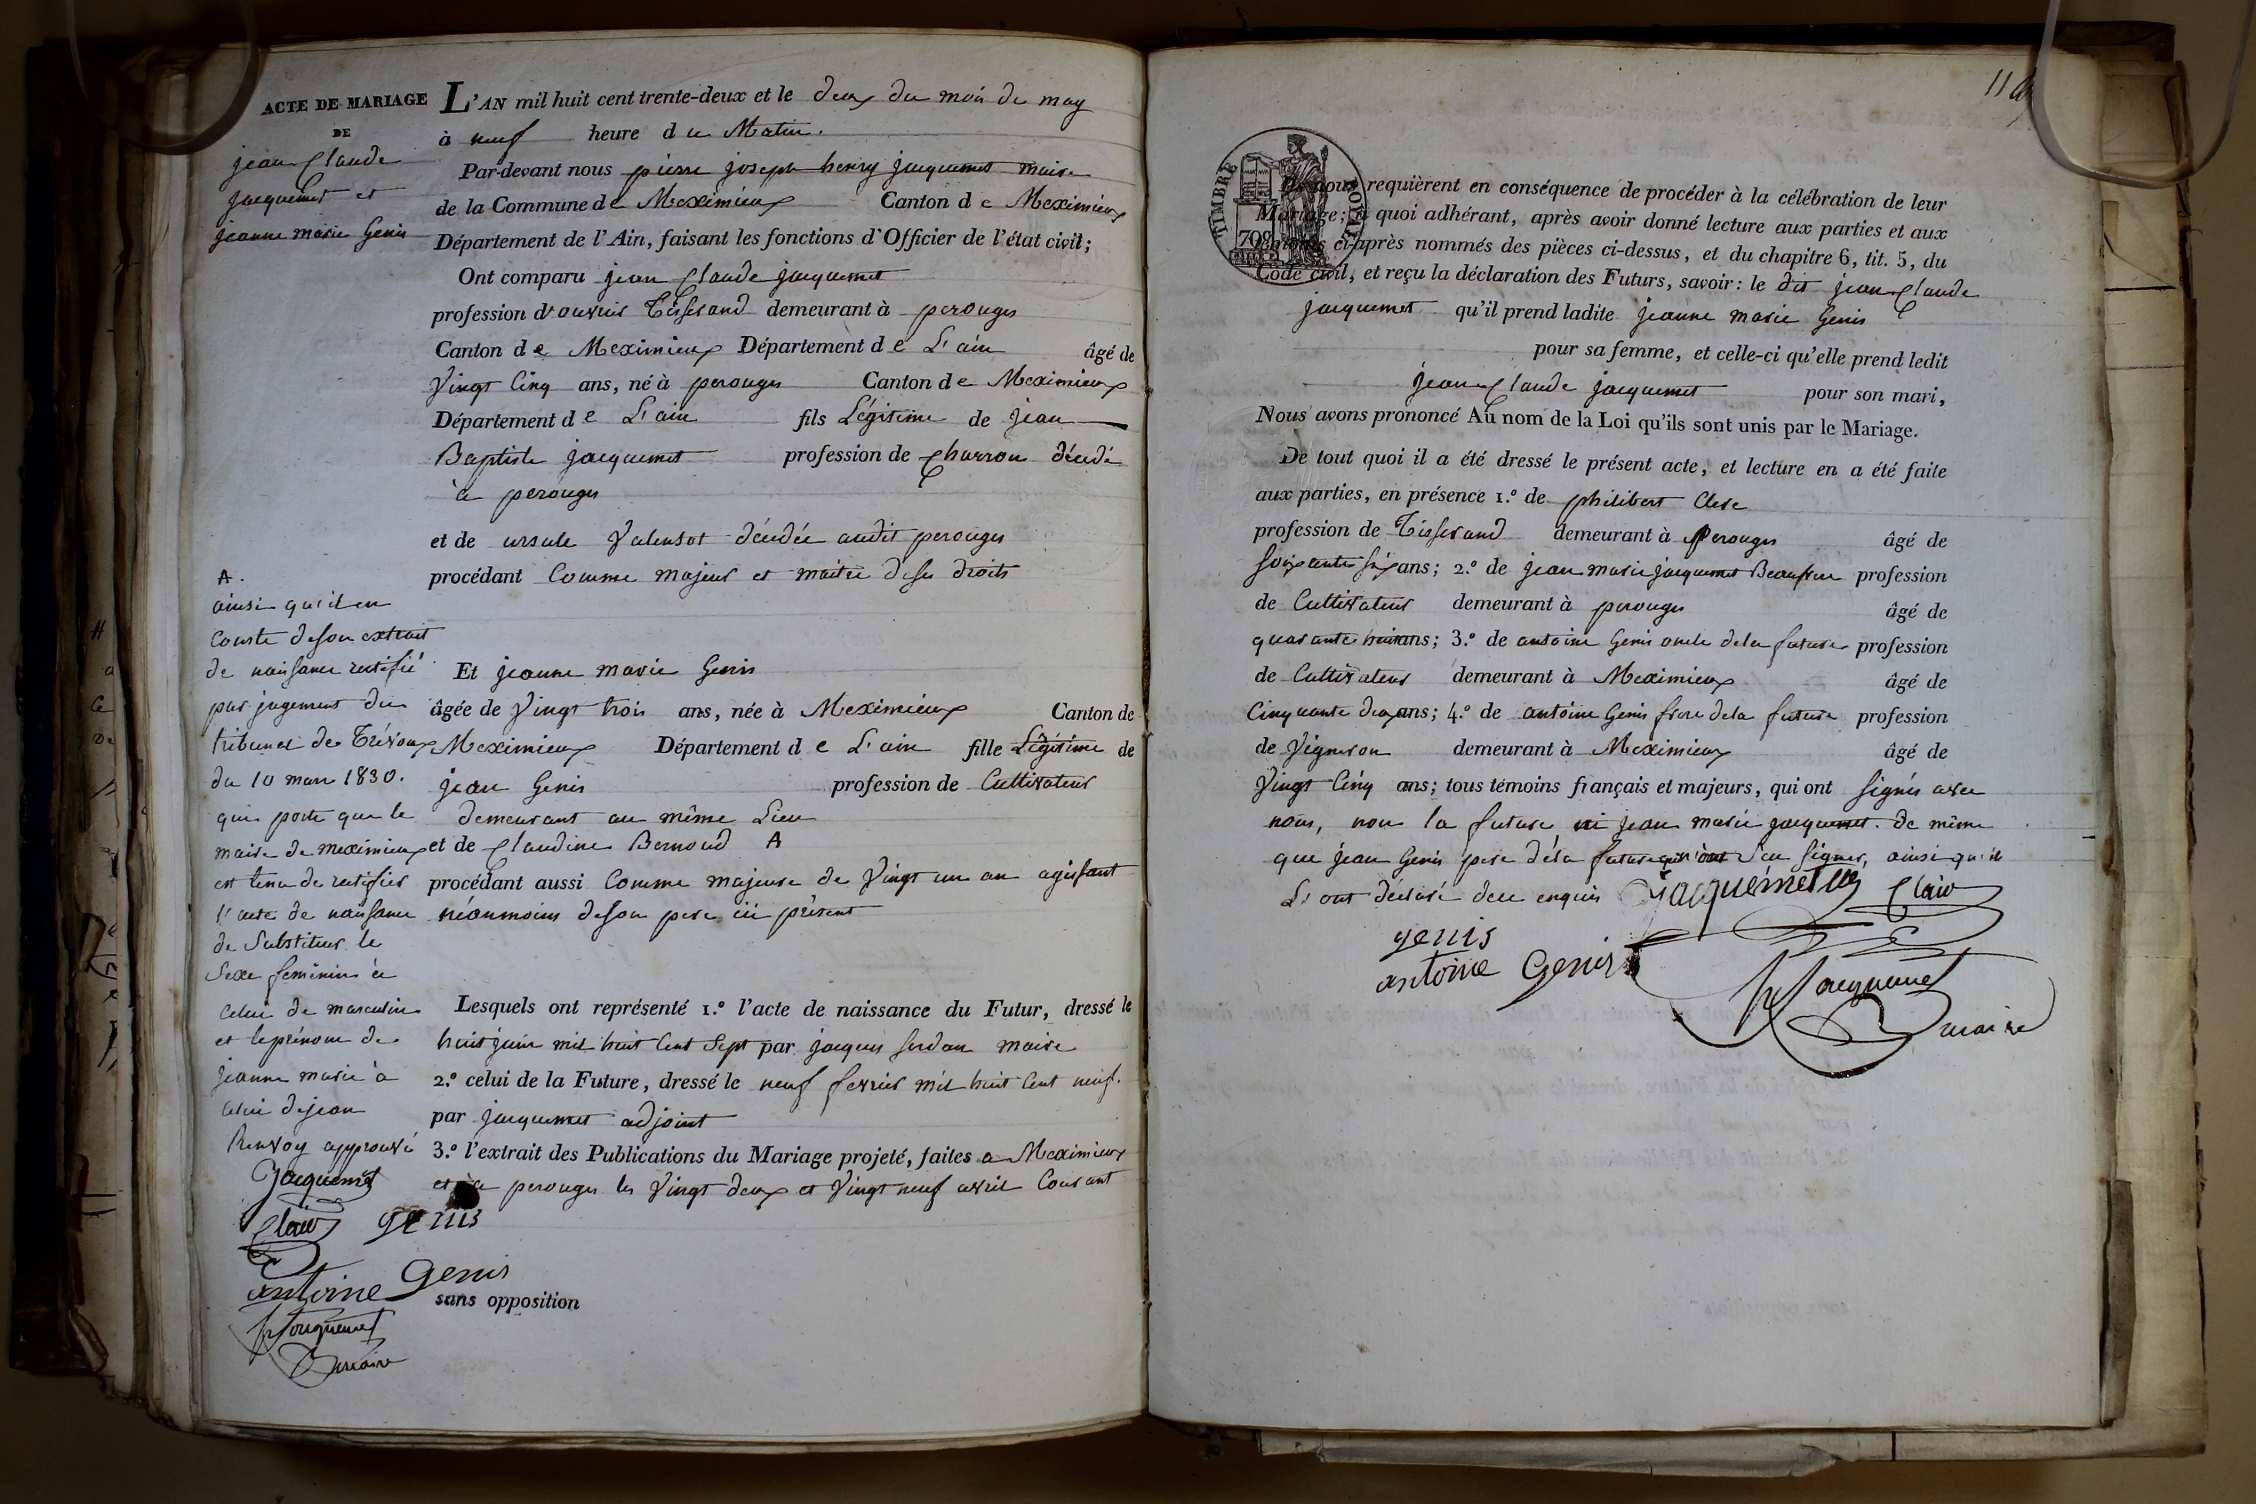 ACTE DE MARIAGE
DE
jean Claude
jacquemet et
jeanne marie Genis
L'AN mil huit cent trente-deux et le deux du mois de may
à neuf heure du Matin.
Par-devant nous pierre joseph henry jacquemet maire
de la Commune de Meximieux Canton de Meximieux
Département de l'Ain, faisant les fonctions d'Officier de l'état civil;
Ont comparu jean Claude jacquemet
profession d'ouvrier Tisserand demeurant à perouges
Canton de Meximieux Département de L'ain âgé de
Vingt Cinq ans, né à perouges Canton de Meximieux
Département de L'ain fils Légitime de jean
Baptiste jacquemet profession de Charron décédé
à perouges
et de ursule Valensot décédée audit perouges
procédant Comme majeur et maitre de ses droits
Et jeanne marie Genis
âgée de Vingt trois ans, née à Meximieux Canton de
Meximieux Département de L'ain fille Légitime de
jean Genis profession de Cultivateur
demeurant au même Lieu
et de Claudine Bernoud A
procédant aussi Comme majeure de Vingt un an agissant
néonmoins de son pere ici présent
Lesquels ont représenté 1.º l'acte de naissance du Futur, dressé le
huit juin mil huit Cent Sept par jacques jordan maire
2.º celui de la Future, dressé le neuf fevrier mil huit Cent neuf.
par jacquemet adjoint
3.º l'extrait des Publications du Mariage projeté, faites a Meximieux
et à perouges les Vingt deux et Vingt neuf avril Courant
sans opposition
A.
ainsi qu'il en
Conste de son extrait
de naissance rectifié
par jugement du
tribunal de Trévoux
du 10 mars 1830.
qui porte que le
maire de meximieux
est tenu de rectifier
l'acte de naissance
de Substituer le
Sexe feminin à
celui de masculin
et le prénom de
jeanne marie à
celui de jean
Renvoy approuvé
Jacquemet
Clair genis
antoine Genis
Jacquemet
maire
119
TIMBRE ROYAL
70c
Ils nous requièrent en conséquence de procéder à la célébration de leur
Mariage; à quoi adhérant, après avoir donné lecture aux parties et aux
témoins ci-après nommés des pièces ci-dessus, et du chapitre 6, tit. 5, du
Code civil, et reçu la déclaration des Futurs, savoir: le dit jean Claude
jacquemet qu'il prend ladite jeanne marie Genis
pour sa femme, et celle-ci qu'elle prend ledit
jean Claude jacquemet pour son mari,
Nous avons prononcé Au nom de la Loi qu'ils sont unis par le Mariage.
De tout quoi il a été dressé le présent acte, et lecture en a été faite
aux parties, en présence 1.º de philibert Clere
profession de Tisserand demeurant à Perouges âgé de
soixante six ans; 2.º de jean marie jacquemet Beaufrere profession
de Cultivateur demeurant à perouges âgé de
quarante huit ans; 3.º de antoine Genis oncle de la future profession
de Cultivateur demeurant à Meximieux âgé de
Cinquante deux ans; 4.º de antoine Genis frere de la future profession
de Vigneron demeurant à Meximieux âgé de
Vingt Cinq ans; tous témoins français et majeurs, qui ont signés avec
nous, non la future ni jean marie jacquemet. de même
que jean Genis pere de la future qui n'ont Seu signer, ainsi qu'ils
L'ont déclaré de ce enquis Jacquemet Clair
genis
antoine Genis
Jacquemet
maire